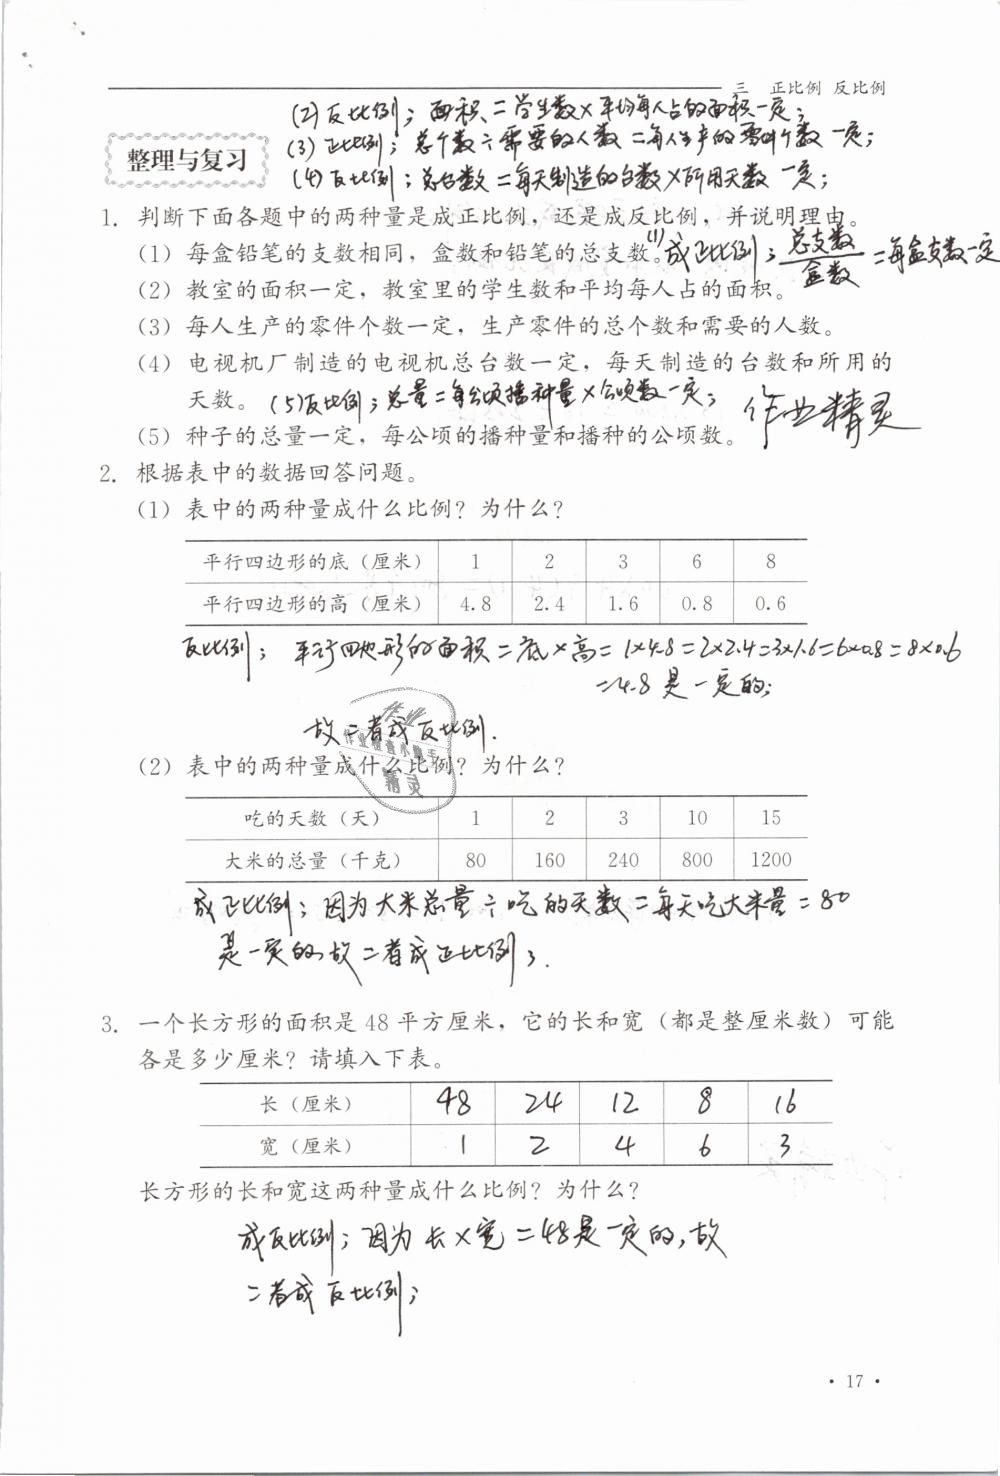 三 正比例 反比例
(2)反比例；面积=学生数×平均每人占的面积一定；
整理与复习
(3)正比例；总个数÷需要的人数=每人生产的零件个数一定；
(4)反比例；总台数=每天制造的台数×所用天数一定；
1. 判断下面各题中的两种量是成正比例，还是成反比例，并说明理由。
(1) 每盒铅笔的支数相同，盒数和铅笔的总支数。(1)成正比例；总支数/盒数=每盒支数一定
(2) 教室的面积一定，教室里的学生数和平均每人占的面积。
(3) 每人生产的零件个数一定，生产零件的总个数和需要的人数。
(4) 电视机厂制造的电视机总台数一定，每天制造的台数和所用的
天数。(5)反比例；总量=每公顷播种量×公顷数一定；
作业精灵
(5) 种子的总量一定，每公顷的播种量和播种的公顷数。
2. 根据表中的数据回答问题。
(1) 表中的两种量成什么比例？为什么？
平行四边形的底（厘米） 1 2 3 6 8
平行四边形的高（厘米） 4.8 2.4 1.6 0.8 0.6
反比例；平行四边形的面积=底×高=1×4.8=2×2.4=3×1.6=6×0.8=8×0.6
=4.8是一定的；
故二者成反比例.
作业
作业检查小助手
精灵
(2) 表中的两种量成什么比例？为什么？
吃的天数（天） 1 2 3 10 15
大米的总量（千克） 80 160 240 800 1200
成正比例；因为大米总量÷吃的天数=每天吃大米量=80
是一定的,故二者成正比例；.
3. 一个长方形的面积是 48 平方厘米，它的长和宽（都是整厘米数）可能
各是多少厘米？请填入下表。
长（厘米） 48 24 12 8 16
宽（厘米） 1 2 4 6 3
长方形的长和宽这两种量成什么比例？为什么？
成反比例；因为长×宽=48是一定的,故
二者成反比例；
· 17 ·